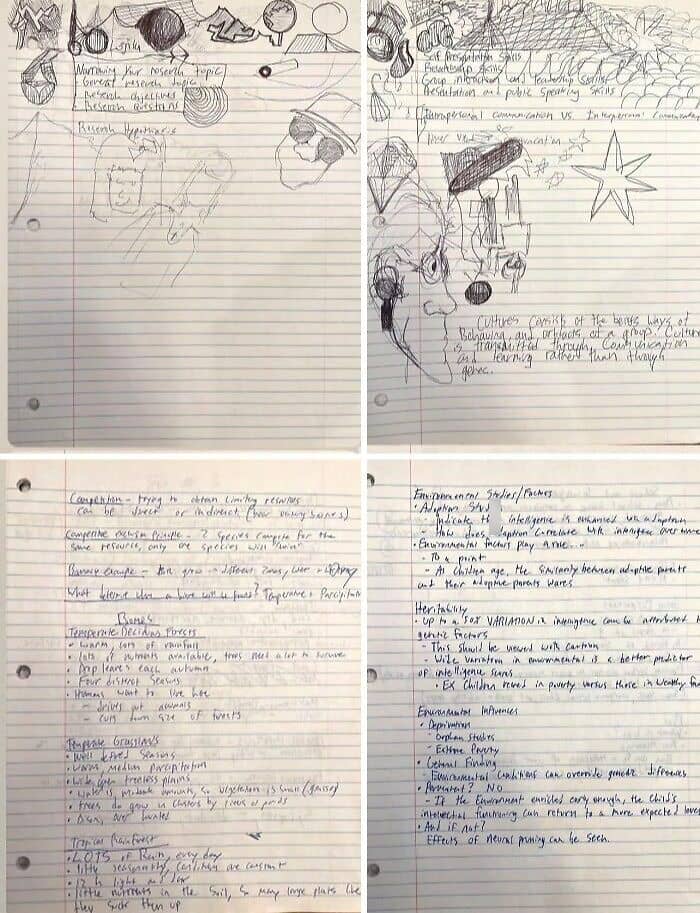 Narrowing Your research topic
General research topic
Research objectives
Research questions
Research Hypothesis
Self Presentation Skills
Relationship Skills
Group interaction and leadership skills
Presentation and public speaking skills
Intrapersonal communication vs. Interpersonal Communication
Cultures consist of the beliefs ways of
Behaving, and artifacts of a group. Culture
is transmitted through Communication
and learning rather than through
genec.
Competition - trying to obtain limiting resources
can be direct or indirect
Competitive exclusion Principle - 2 Species compete for the
same resource, only one species will "win"
What determines where a biome will be found? Temperature + Precipitation
Biomes
Temperate Deciduous Forests
• warm, lots of rainfall
• lots of nutrients available, trees need a lot to survive
• Drop leaves each autumn
• Four distinct Seasons
• Humans want to live here
- drives out animals
- cuts down size of forests
Temperate Grasslands
• well defined Seasons
• warm, medium precipitation
• wide open treeless plains
• water is moderate amounts, so vegetation is small (grasses)
• trees do grow in clusters by rivers or ponds
• over hunted
Tropical Rainforest
• LOTS of Rain, every day
• little seasonality, conditions are constant
• 12 h light and
• little nutrients in the Soil, so many large plants
they suck them up
Environmental Studies/Factors
• Adoption Stud
- Indicate th intelligence is enhanced
- How does adoption correlate with intelligence over time
• Environmental factors play a role...
- To a point
- As Children age, the similarity between adoptive parents
and their adoptive parents
Heritability
• up to a 50% VARIATION in intelligence can be attributed t
genetic factors
- This should be viewed with caution
- Wide variation in environmental is a better predictor
of intelligence scores
• EX Children reared in poverty versus those in wealthy
Environmental Influences
• Deprivation
- Orphan studies
- Extreme Poverty
• General Finding
- Environmental Conditions can override genetic differences
• Permanent? NO
- If the Environment enriched early enough, the child's
intellectual functioning can return to a more expected level
• And if not?
Effects of neural pruning can be seen.